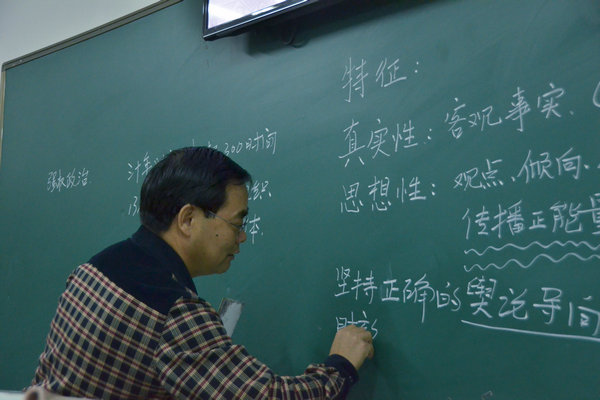 特征：
真实性：客观事实、
思想性：观点、倾向、
传播正能量
坚持正确的舆论导向
强权政治
300时间
织
体